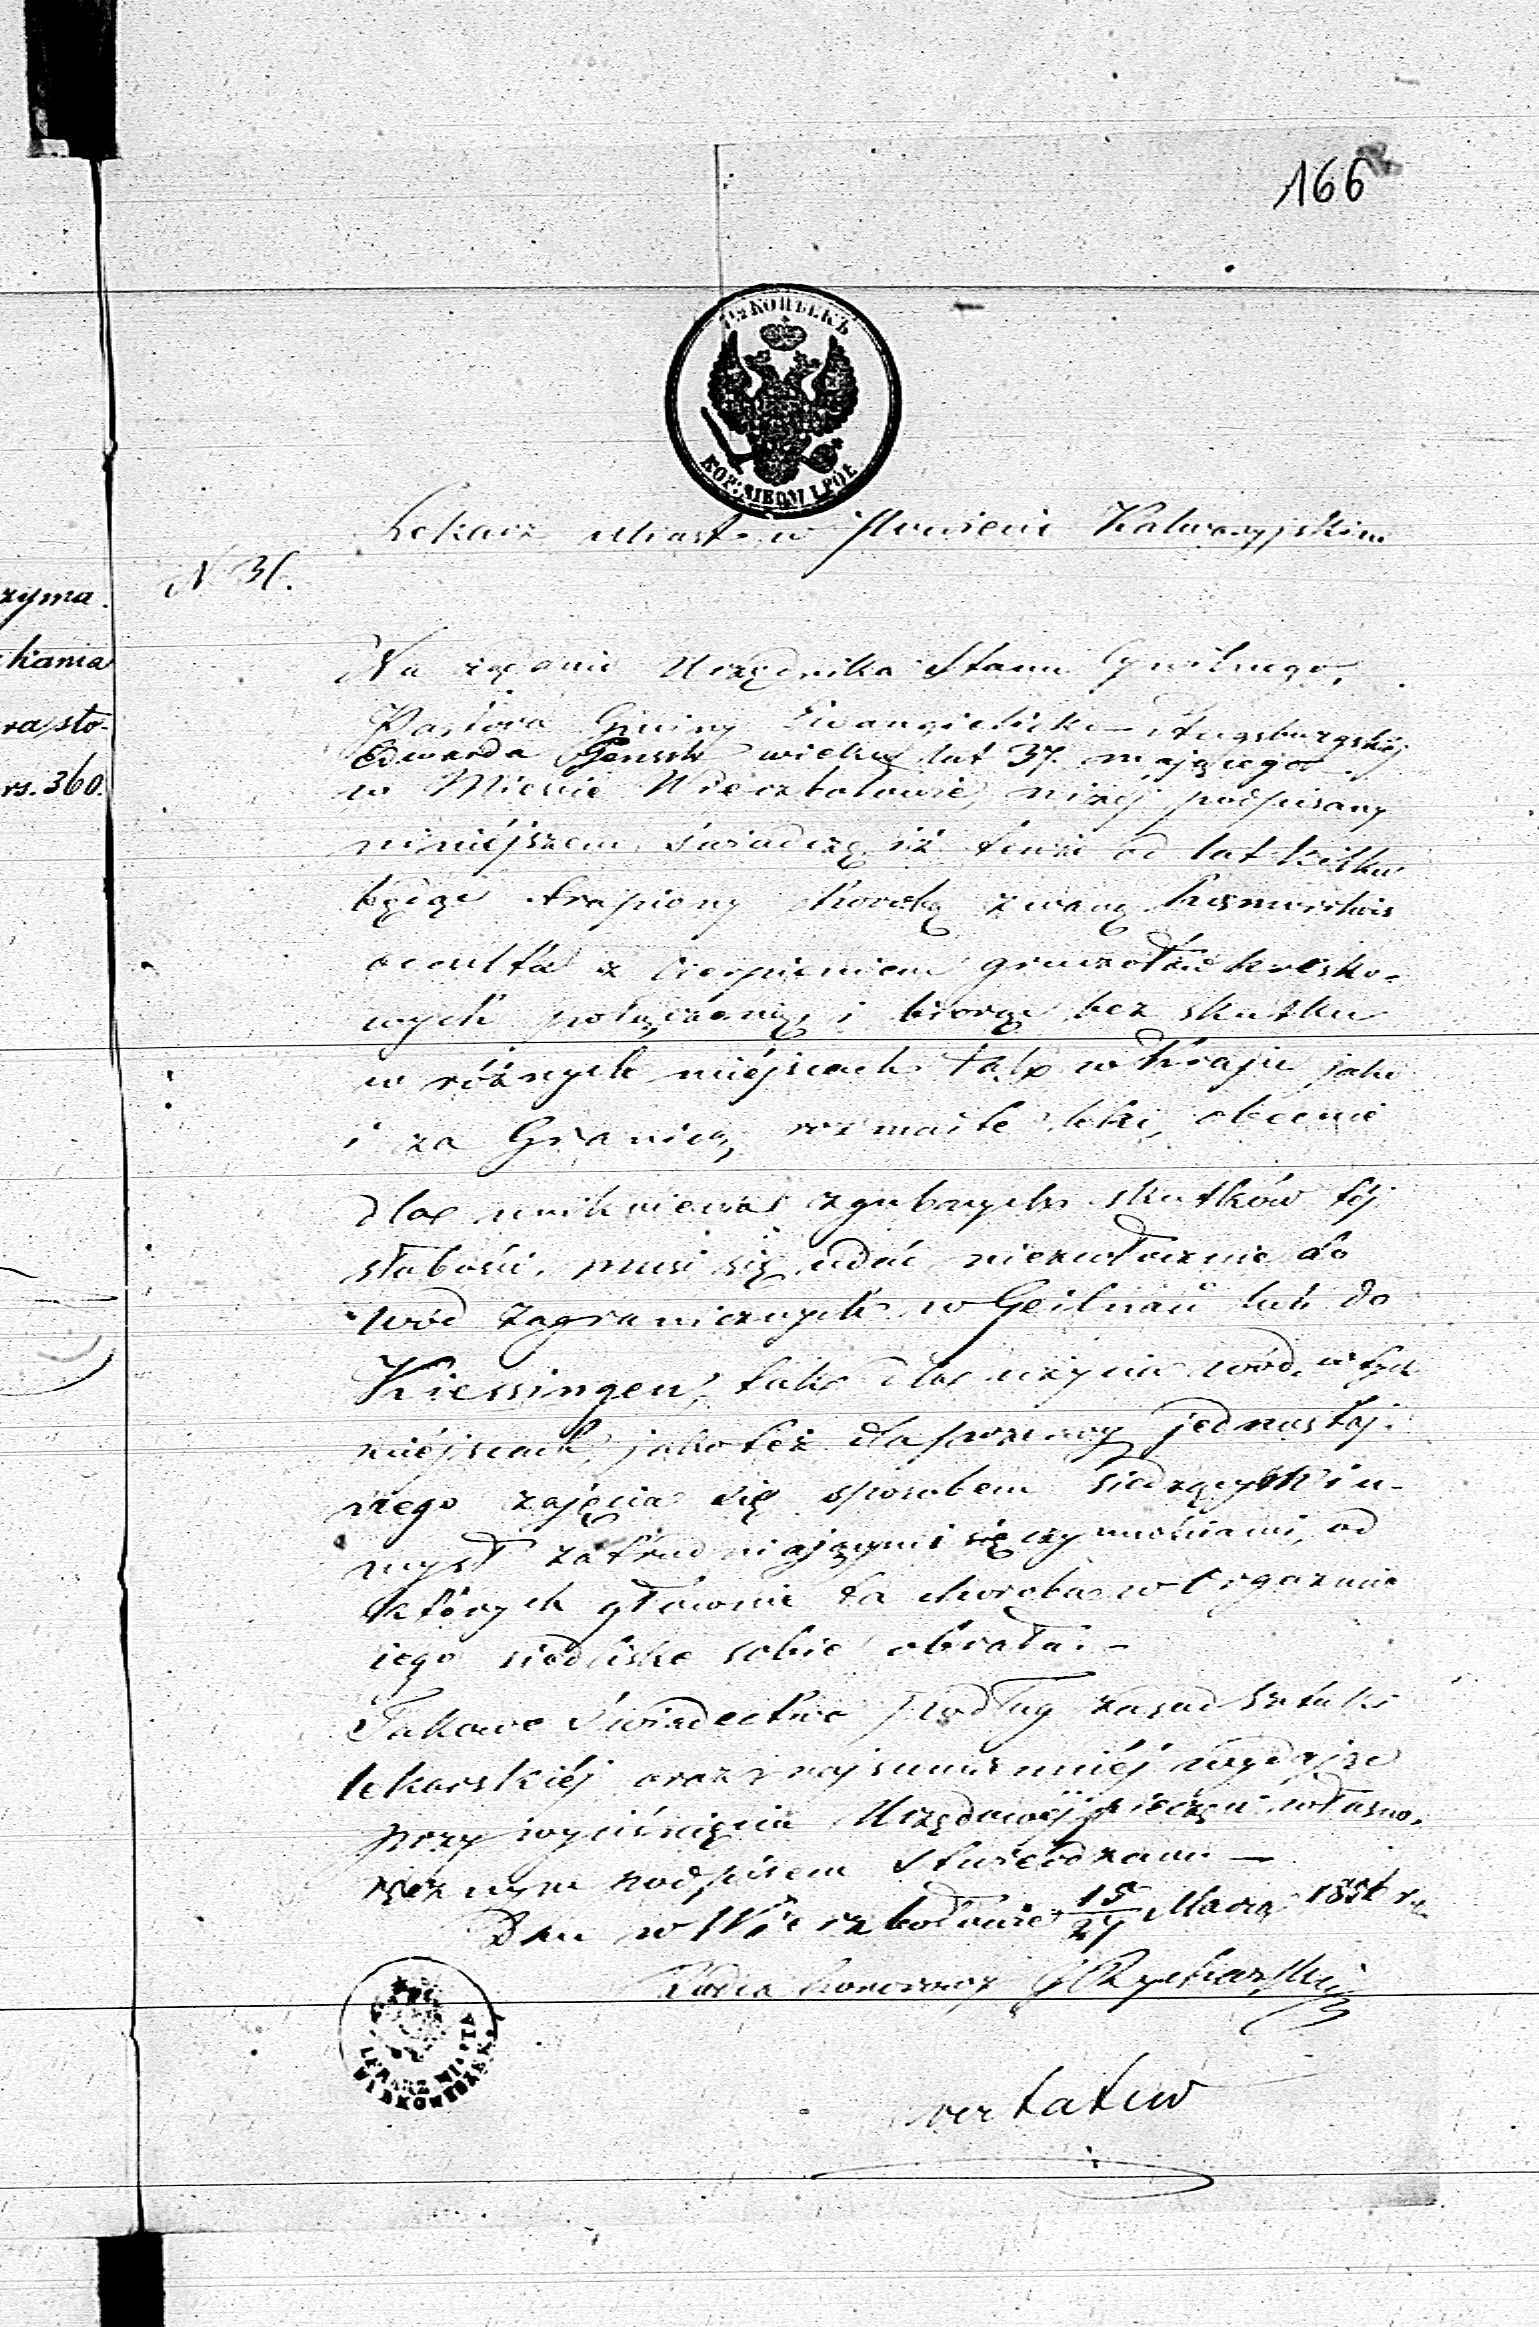 166
7½ КОПѢЕКЪ
KOP. SIEDM I PÓŁ
Lekarz Miast w Powiecie Kalwaryjskim
N 31.
zyma.
kania
ra sto-
rs. 360.
Na żądanie Urzędnika Stanu Cywilnego,
Pastora Gminy Ewangielicko-Augsburgskiéj
Edwarda wieku lat 37. mającego
w Mieście Wierzbołowie, niżéj podpisany
niniéjszem świadczę iż tenże od lat kilku
będąc trapiony chorobą zwaną
occulta z cierpieniem gruczołów krysko-
wych połączoną i biorąc bez skutku
w różnych miéjscach tak w Kraju jako
i za Granicą rozmaite leki, obecnie
dla uniknienia zgubnych skutków téj
słabości, musi się udać niezwłocznie do
wód zagranicznych w Geilnau lub do
Kiessingen, tak dla użycia wód w tych
miéjscach, jako też dla przerwy jednostaj-
nego zajęcia się sposobem siedzącym i u-
mysł zatrudniającymi się czynnościami, od
których głównie ta choroba w Organizmie
jego siedlisko sobie obrała. -
Takowe Świadectwo podług zasad sztuki
lekarskiéj oraz najsumienniéj wydając
przy wyciśnięciu Urzędowéj pieczęci własno-
ręcznym podpisem stwierdzam —
Dan w Wierzbołowie 15/27 Marca r.
Radca honorowy
LEKARZ MIASTA